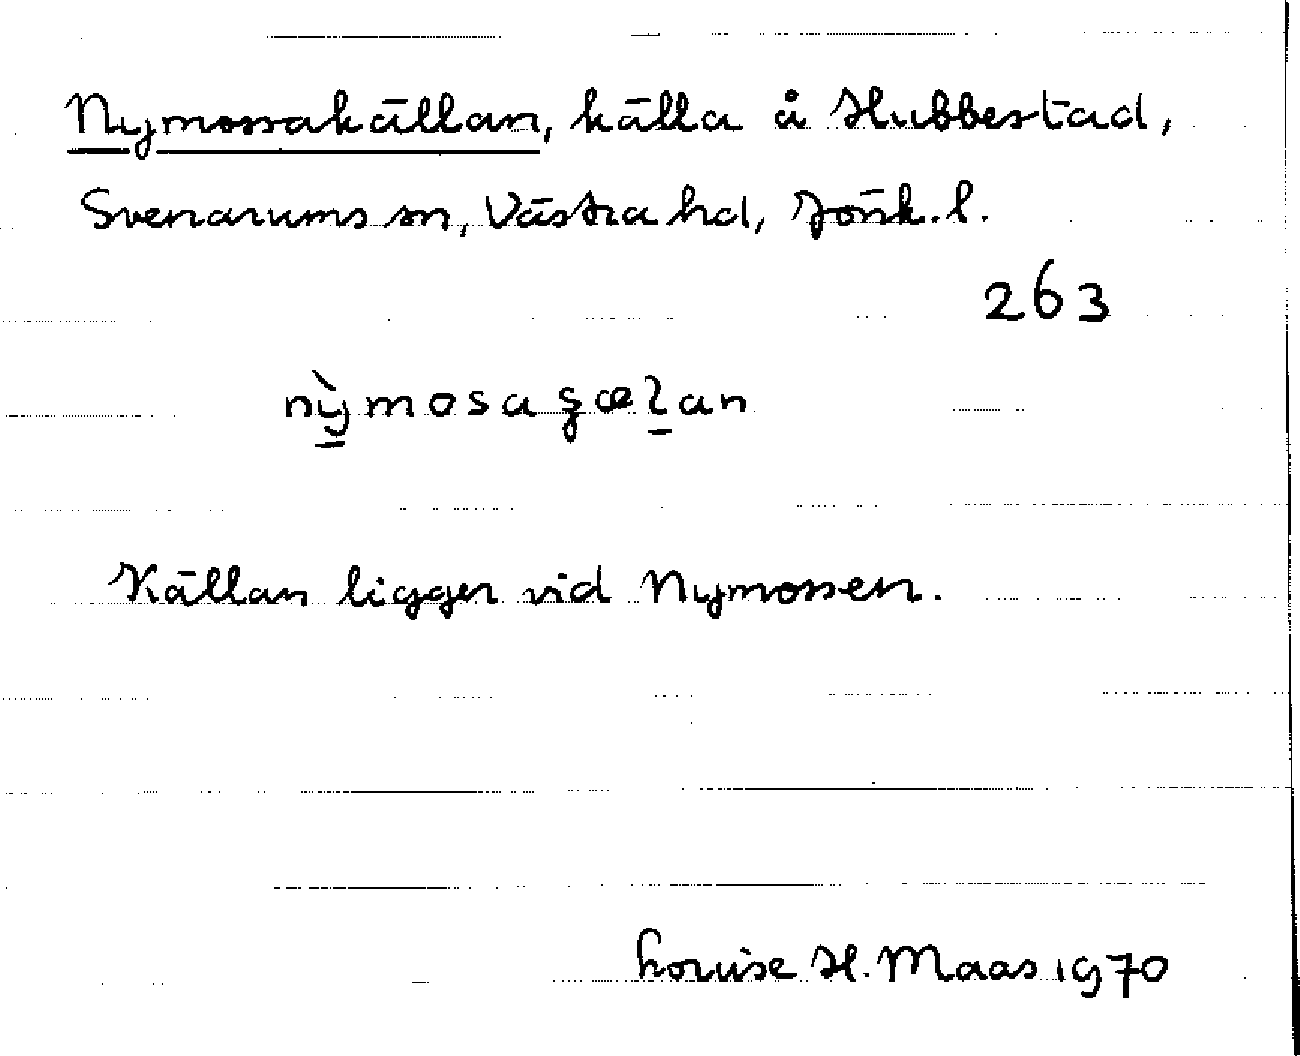 Nymossakällan, källa å Hubbestad,
Svenarums sn, Västra hd, Jönk. l.
263
nỳmosaʂæɩ̲an
Källan ligger vid Nymossen.
Louise H. Maas 1970